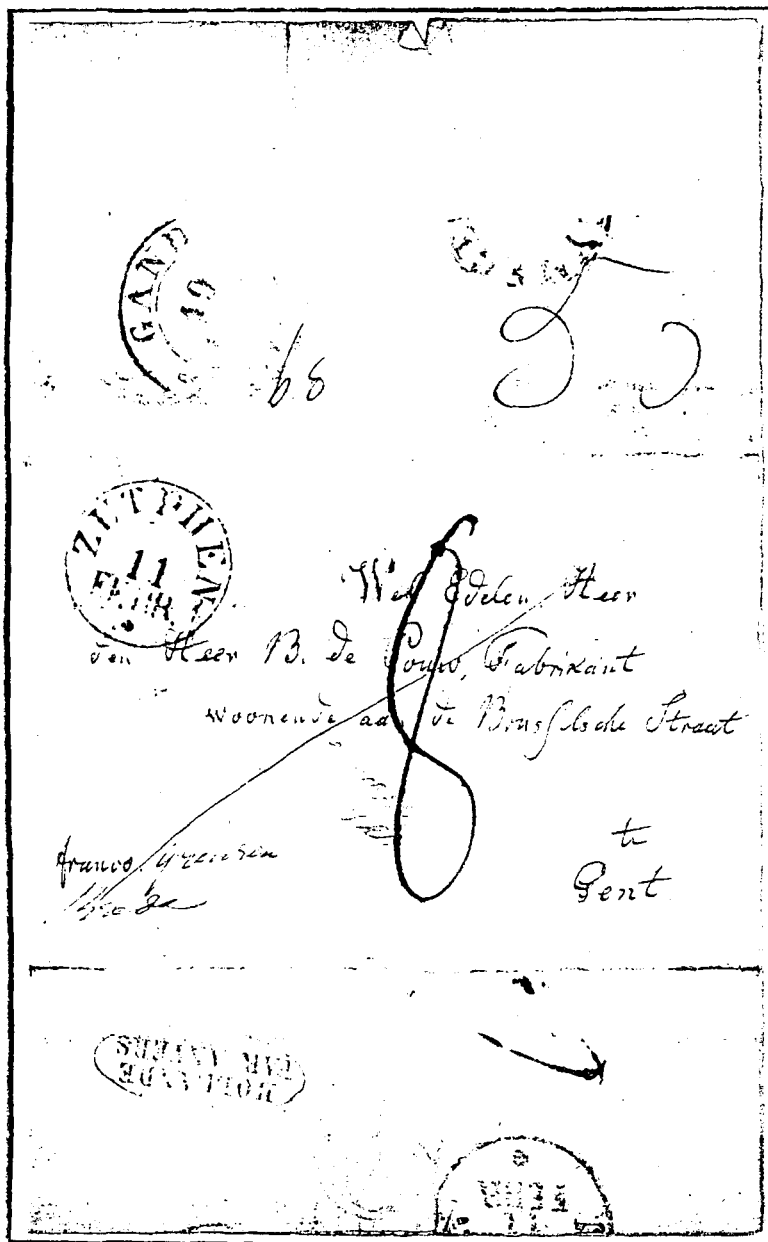 GAND
19
68
ZUTPHEN
11
FEBR.
Wel Edelen Heer
den Heer B. de Pouw, Fabrikant
woonende aan de Brusselsche Straat
te
franco grenzen
Gent
8
HOLLANDE
PAR ANVERS